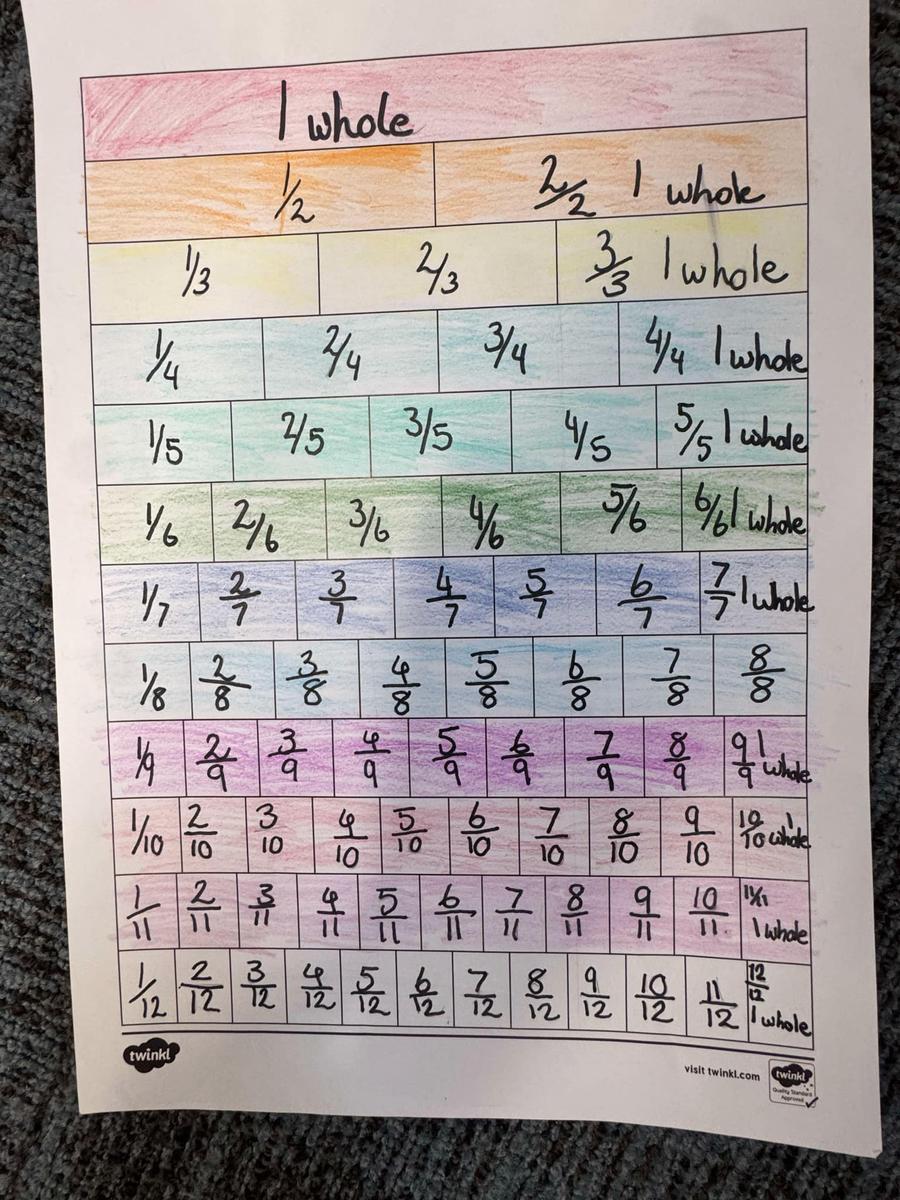 1 whole
1/2 2/2 1 whole
1/3 2/3 3/3 1 whole
1/4 2/4 3/4 4/4 1 whole
1/5 2/5 3/5 4/5 5/5 1 whole
1/6 2/6 3/6 4/6 5/6 6/6 1 whole
1/7 2/7 3/7 4/7 5/7 6/7 7/7 1 whole
1/8 2/8 3/8 4/8 5/8 6/8 7/8 8/8
1/9 2/9 3/9 4/9 5/9 6/9 7/9 8/9 9/9 1 whole
1/10 2/10 3/10 4/10 5/10 6/10 7/10 8/10 9/10 10/10 1 whole
1/11 2/11 3/11 4/11 5/11 6/11 7/11 8/11 9/11 10/11 11/11 1 whole
1/12 2/12 3/12 4/12 5/12 6/12 7/12 8/12 9/12 10/12 11/12 12/12 1 whole
twinkl
visit twinkl.com
twinkl
Quality Standard
Approved